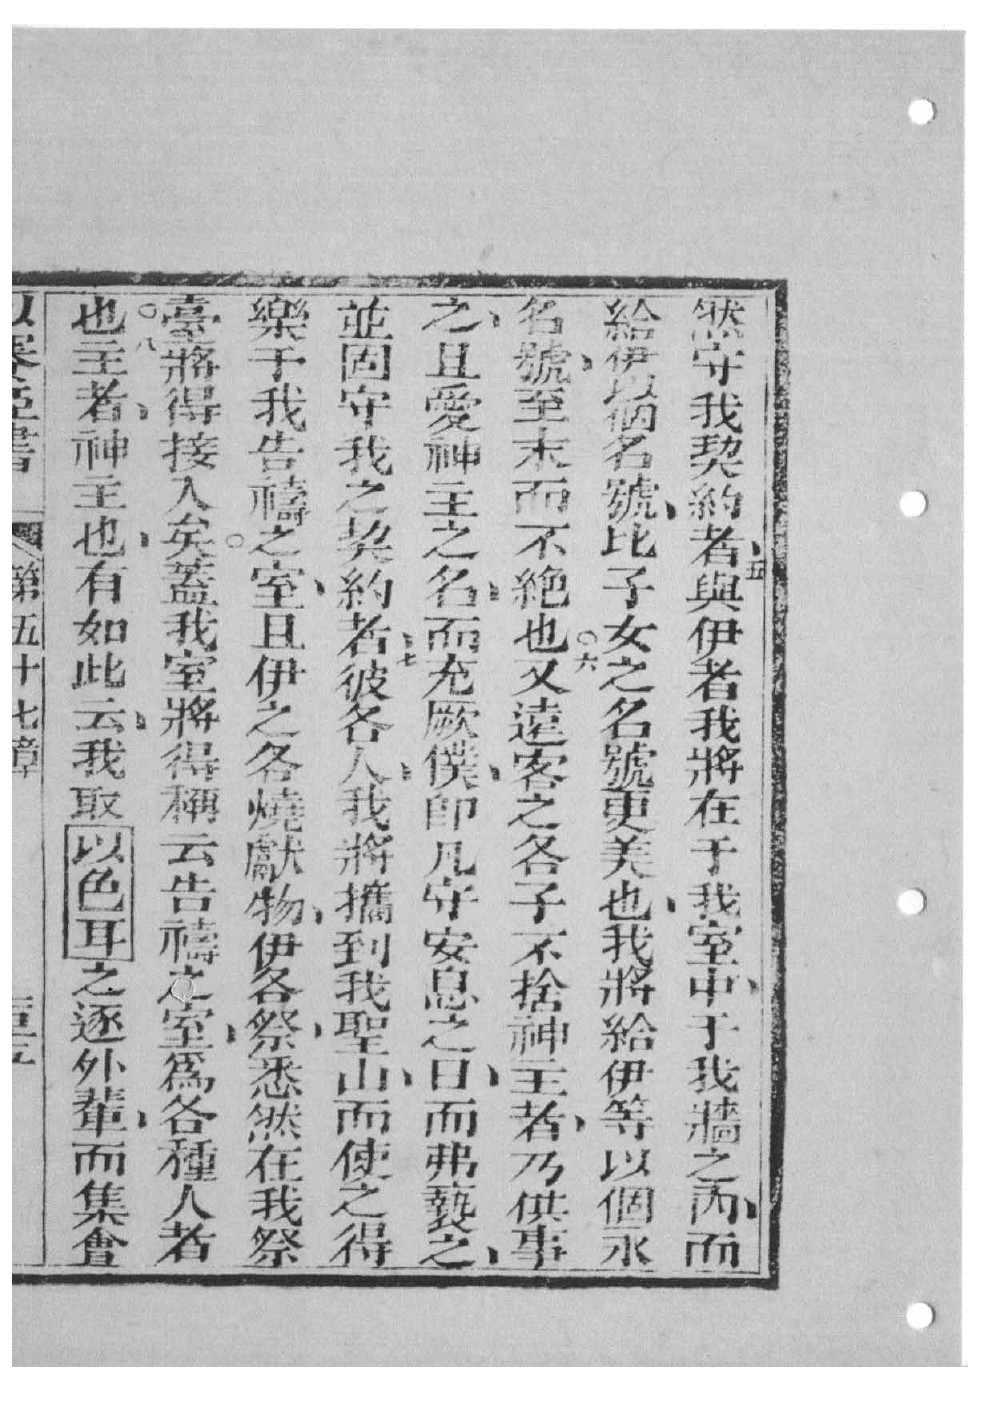 然守我契約者五與伊者我將在于我室中于我牆之內而
給伊以個名號比子女之名號更美也我將給伊等以個永
名號至末而不絕也○六又遠客之各子不捨神主者乃供事
之且愛神主之名而充厥僕卽凡守安息之日而弗褻之
並固守我之契約者七彼各人我將攜到我聖山而使之得
樂于我告禱之室且伊之各燒獻物伊各祭悉然在我祭
臺將得接入矣○蓋我室將得稱云告禱之室爲各種人者
○八也主者神主也有如此云我取以色耳之逐外輩而集會
第五十七章